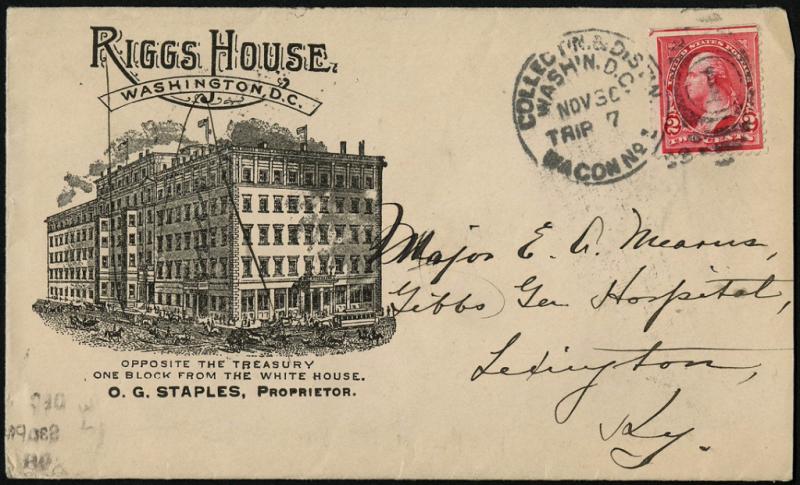 RIGGS HOUSE.
WASHINGTON, D.C.
OPPOSITE THE TREASURY
ONE BLOCK FROM THE WHITE HOUSE.
O. G. STAPLES, PROPRIETOR.
COLLECT'N. & DIST'N.
WASH'N. D.C.
NOV 30
TRIP 7
WAGON No. 1
UNITED STATES POSTAGE
2 2
TWO CENTS
Major E. A. Mearns,
Gibbs Gen Hospital,
Lexington,
Ky.
DEC
830PM